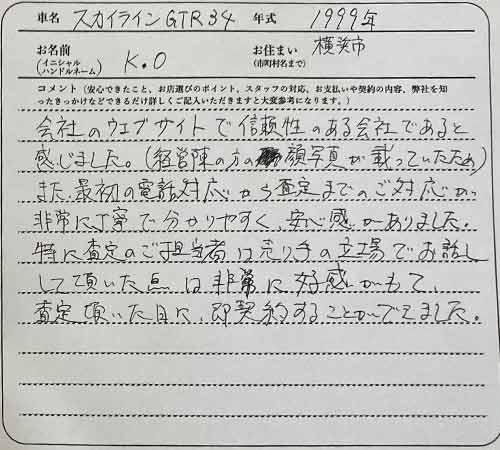 車名 スカイラインGTR34 年式 1999年
お名前 (イニシャル ハンドルネーム) K.O お住まい (市町村名まで) 横浜市
コメント(安心できたこと、お店選びのポイント、スタッフの対応、お支払いや契約の内容、弊社を知
ったきっかけなどできるだけ詳しくご記入いただきますと大変参考になります。)
会社のウェブサイトで信頼性のある会社であると
感じました。(経営陣の方の顔写真が載っていたため)
また、最初の電話対応から査定までのご対応が
非常に丁寧で分かりやすく、安心感がありました。
特に査定のご担当者は売り手の立場でお話し
して頂いた点は非常に好感がもて、
査定頂いた日に、即契約することができました。